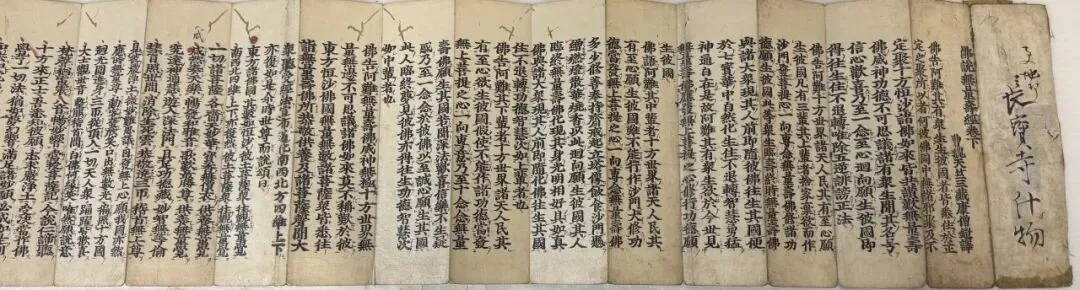 長寶寺什物
佛說無量壽經卷下
曹魏天竺三藏康僧鎧譯
佛告阿難其有衆生生彼國者皆悉住於正
定之聚所以者何彼佛國中無諸邪聚及不
定聚十方恒沙諸佛如來皆共讚歎無量壽
佛威神功德不可思議諸有衆生聞其名号
信心歡喜乃至一念至心迴向願生彼國即
得往生住不退轉唯除五逆誹謗正法
佛告阿難十方世界諸天人民其有至心願
生彼國凡有三輩其上輩者捨家棄欲而作
沙門發菩提心一向專念無量壽佛修諸功
德願生彼國此等衆生臨壽終時無量壽佛
與諸大衆現其人前即隨彼佛往生其國便
於七寶華中自然化生住不退轉智慧勇猛
神通自在是故阿難其有衆生欲於今世見
無量壽佛應發無上菩提之心修行功德願
生彼國
佛語阿難其中輩者十方世界諸天人民其
有至心願生彼國雖不能行作沙門大修功德
當發無上菩提之心一向專念無量壽佛
多少修善奉持齋戒起立塔像飯食沙門懸
繒燃燈散華燒香以此迴向願生彼國其人
臨終無量壽佛化現其身光明相好具如真
佛與諸大衆現其人前即隨化佛往生其國
住不退轉功德智慧次如上輩者也
佛告阿難其下輩者十方世界諸天人民其
有至心欲生彼國假使不能作諸功德當發
無上菩提之心一向專意乃至十念念無量
壽佛願生其國若聞深法歡喜信樂不生疑
惑乃至一念念於彼佛以至誠心願生其國
此人臨終夢見彼佛亦得往生功德智慧次
如中輩者也
佛告阿難無量壽佛威神無極十方世界無
量無邊不可思議諸佛如來莫不稱歎於彼
東方恒沙佛國無量無數諸菩薩衆皆悉往
詣無量壽佛所恭敬供養及諸菩薩聲聞大
衆聽受經法宣布道化南西北方四維上下
亦復如是爾時世尊而說頌曰
東方諸佛國 其數如恒沙 彼土菩薩衆 往覲無量覺
南西北四維 上下亦復然 彼土菩薩衆 往覲無量覺
一切諸菩薩 各齎天妙華 寶香無價衣 供養無量覺
咸然奏天樂 暢發和雅音 歌歎最勝尊 供養無量覺
究達神通慧 遊入深法門 具足功德藏 妙智無等倫
慧日照世間 消除生死雲 恭敬繞三匝 稽首無上尊
見彼嚴淨土 微妙難思議 因發無上心 願我國亦然
應時無量尊 動容發欣笑 口出無數光 遍照十方國
迴光圍繞身 三匝從頂入 一切天人衆 踊躍皆歡喜
大士觀世音 整服稽首問 白佛何緣笑 唯然願說意
梵聲猶雷震 八音暢妙響 當授菩薩記 今說仁諦聽
十方來正士 吾悉知彼願 志求嚴淨土 受決當作佛
覺了一切法 猶如夢幻響 滿足諸妙願 必成如是刹